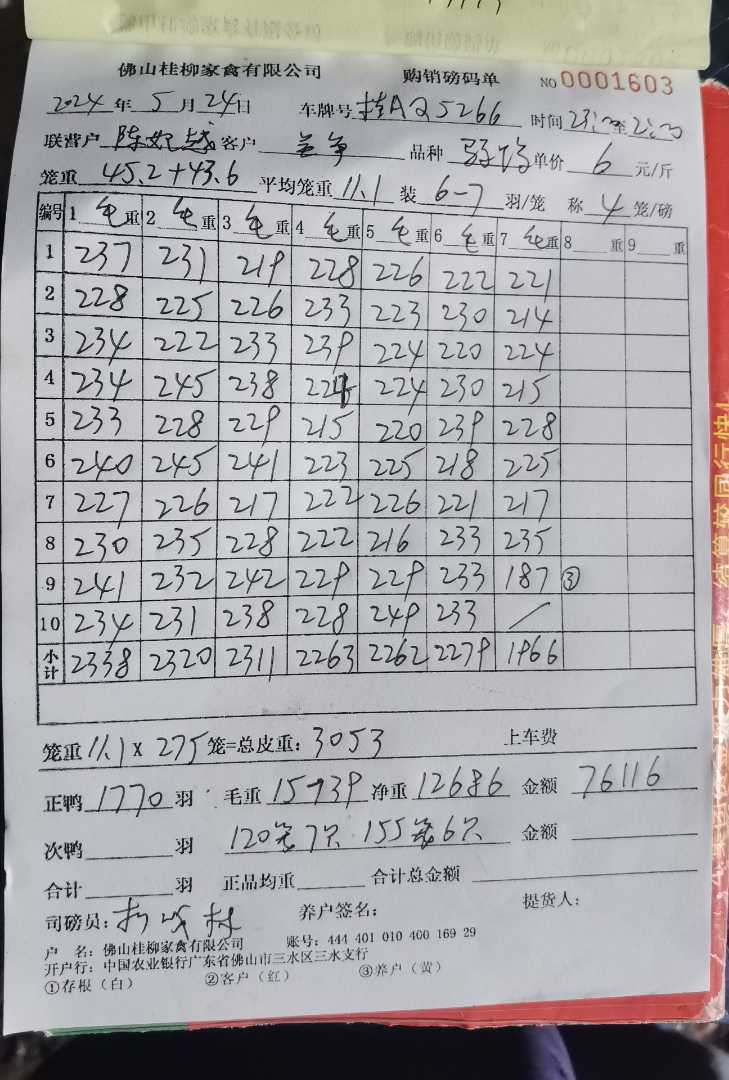 佛山桂柳家禽有限公司 购销磅码单 NO 0001603
2024 年 5 月 24日 车牌号 桂AQ5266 时间 23:00 至 2:00
联营户 客户 品种 单价 6 元/斤
笼重 45.2+43.6 平均笼重 11.1 装 6-7 羽/笼 称 4 笼/磅
编号 1 毛重 2 毛重 3 毛重 4 毛重 5 毛重 6 毛重 7 毛重 8 重 9 重
1 237 231 219 228 226 222 221
2 228 225 226 233 223 230 214
3 234 222 233 239 224 220 224
4 234 245 238 224 230 215
5 233 228 229 215 220 239 228
6 240 245 241 223 225 218 225
7 227 226 217 222 226 221 217
8 230 235 228 222 216 233 235
9 241 232 242 229 229 233 187 ③
10 234 231 238 228 249 233 /
小计 2338 2320 2311 2263 2262 2279 1966
笼重 11.1 x 275 笼=总皮重: 3053 上车费
正鸭 1770 羽 毛重 15739 净重 12686 金额 76116
次鸭 羽 120笼7只 155笼6只 金额
合计 羽 正品均重 合计总金额
司磅员: 养户签名: 提货人:
户 名: 佛山桂柳家禽有限公司 账号: 444 401 010 400 169 29
开户行: 中国农业银行广东省佛山市三水区三水支行
①存根(白) ②客户(红) ③养户(黄)